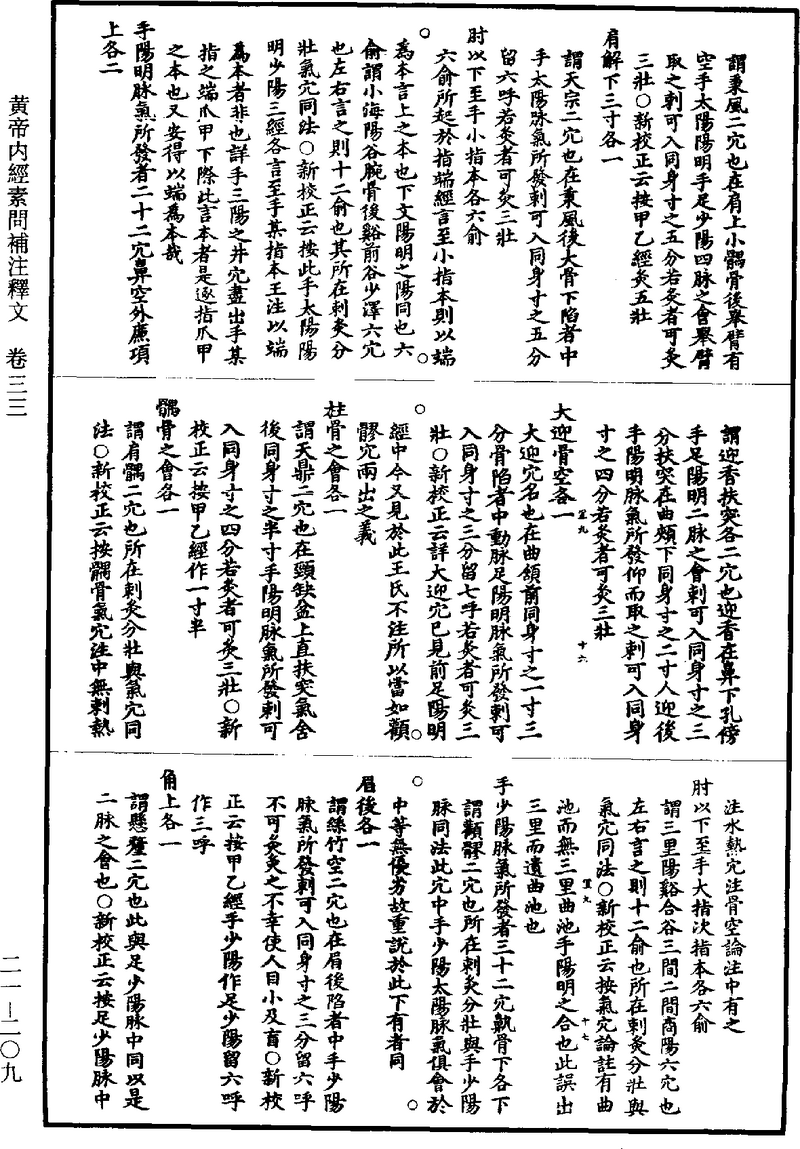 謂秉風二穴也在肩上小髃骨後舉臂有
空手太陽陽明手足少陽四脉之會舉臂
取之刺可入同身寸之五分若灸者可灸
三壯○新校正云按甲乙經灸五壯
肩解下三寸各一
謂天宗二穴也在秉風後大骨下陷者中
手太陽脉氣所發刺可入同身寸之五分
留六呼若灸者可灸三壯
肘以下至手小指本各六俞
六俞所起於指端經言至小指本則以端
為本言上之本也下文陽明之陽同也六
俞謂小海陽谷腕骨後谿前谷少澤六穴
也左右言之則十二俞也其所在刺灸分
壯氣穴同法○新校正云按此手太陽陽
明少陽三經各言至手某指本王注以端
為本者非也詳手三陽之井穴盡出手某
指之端爪甲下際此言本者是逐指爪甲
之本也又安得以端為本哉
手陽明脉氣所發者二十二穴鼻空外廉項
上各二
謂迎香扶突各二穴也迎香在鼻下孔傍
手足陽明二脉之會刺可入同身寸之三
分扶突在曲頰下同身寸之二寸人迎後
手陽明脉氣所發仰而取之刺可入同身
寸之四分若灸者可灸三壯
大迎骨空各一
大迎穴名也在曲頷前同身寸之一寸三
分骨陷者中動脉足陽明脉氣所發刺可
入同身寸之三分留七呼若灸者可灸三
壯○新校正云詳大迎穴已見前足陽明
經中今又見於此王氏不注所以當如顴
髎穴兩出之義
柱骨之會各一
謂天鼎二穴也在頸缺盆上直扶突氣舍
後同身寸之半寸手陽明脉氣所發刺可
入同身寸之四分若灸者可灸三壯○新
校正云按甲乙經作一寸半
髃骨之會各一
謂肩髃二穴也所在刺灸分壯與氣穴同
法○新校正云按髃骨氣穴注中無刺熱
注水熱穴注骨空論注中有之
肘以下至手大指次指本各六俞
謂三里陽谿合谷三間二間商陽六穴也
左右言之則十二俞也所在刺灸分壯與
氣穴同法○新校正云按氣穴論註有曲
池而無三里曲池手陽明之合也此誤出
三里而遺曲池也
手少陽脉氣所發者三十二穴鼽骨下各下
謂顴髎二穴也所在刺灸分壯與手少陽
脉同法此穴中手少陽太陽脉氣俱會於
中等無優劣故重說於此下有者同
眉後各一
謂絲竹空二穴也在眉後陷者中手少陽
脉氣所發刺可入同身寸之三分留六呼
不可灸灸之不幸使人目小及盲○新校
正云按甲乙經手少陽作足少陽留六呼
作三呼
角上各一
謂懸釐二穴也此與足少陽脉中同以是
二脉之會也○新校正云按足少陽脉中
黃帝內經素問補注釋文 卷三三
二一－二〇九